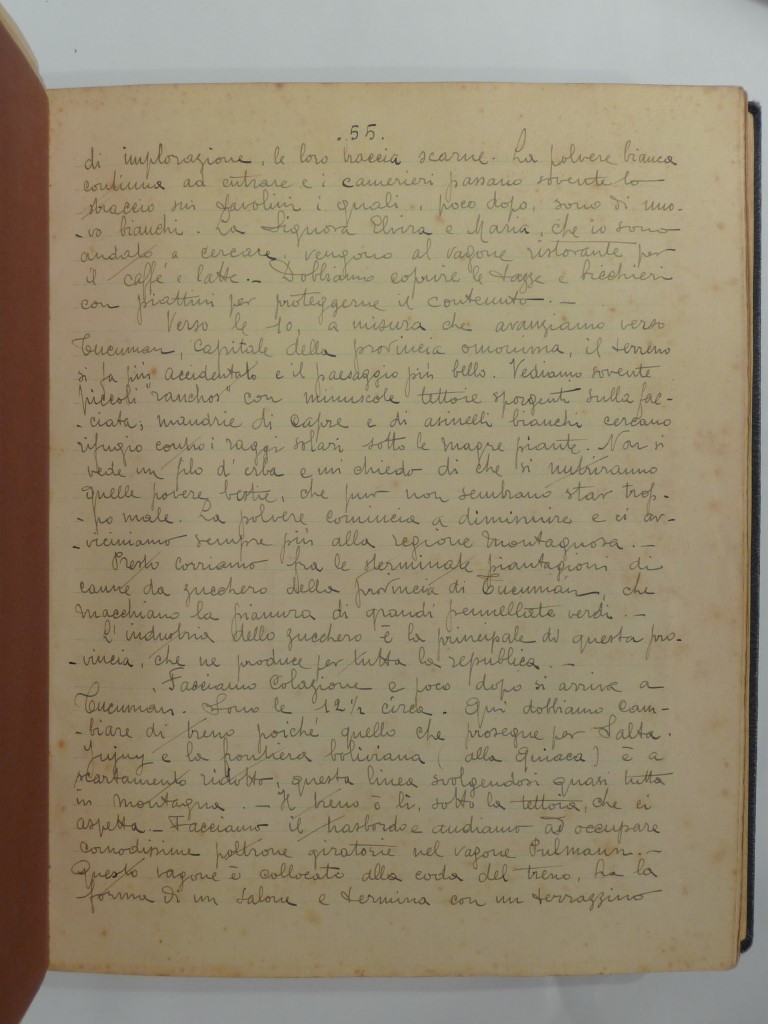 .55.
di implorazione, le loro braccia scarne. La polvere bianca
continua ad entrare e i camerieri passano sovente lo
straccio sui tavolini i quali, poco dopo, sono di nuo-
-vo bianchi. La Signora Elvira e Maria, che io sono
andato a cercare, vengono al vagone ristorante per
il caffé e latte. - Dobbiamo coprire le tazze e bicchieri
con piattini per proteggerne il contenuto. -
Verso le 10, a misura che avanziamo verso
Tucuman, capitale della provincia omonima, il terreno
si fa più accidentato e il paesaggio più bello. Vediamo sovente
piccoli "ranchos" con minuscole tettoie sporgenti sulla fac-
-ciata; mandrie di capre e di asinelli bianchi cercano
rifugio contro i raggi solari sotto le magre piante. Non si
vede un filo d'erba e mi chiedo di che si nutriranno
quelle povere bestie, che pur non sembrano star trop-
-po male. La polvere comincia a diminuire e ci av-
-viciniamo sempre più alla regione montagnosa. -
Presto corriamo fra le sterminate piantagioni di
canne da zucchero della provincia di Tucumán, che
macchiano la pianura di grandi pennellate verdi. -
L'industria dello zucchero è la principale di questa pro-
-vincia, che ne produce per tutta la republica. -
Facciamo colazione e poco dopo si arriva a
Tucuman. Sono le 12½ circa. Qui dobbiamo cam-
-biare di treno poiché quello che prosegue per Salta.
Jujuy e la frontiera boliviana (alla Quiaca) è a
scartamento ridotto, questa linea svolgendosi quasi tutta
in montagna. - Il treno è lì, sotto la tettoia, che ci
aspetta. - Facciamo il trasbordo e andiamo ad occupare
comodissime poltrone giratorie nel vagone Pulmann. -
Questo vagone è collocato alla coda del treno, ha la
forma di un salone e termina con un terrazzino